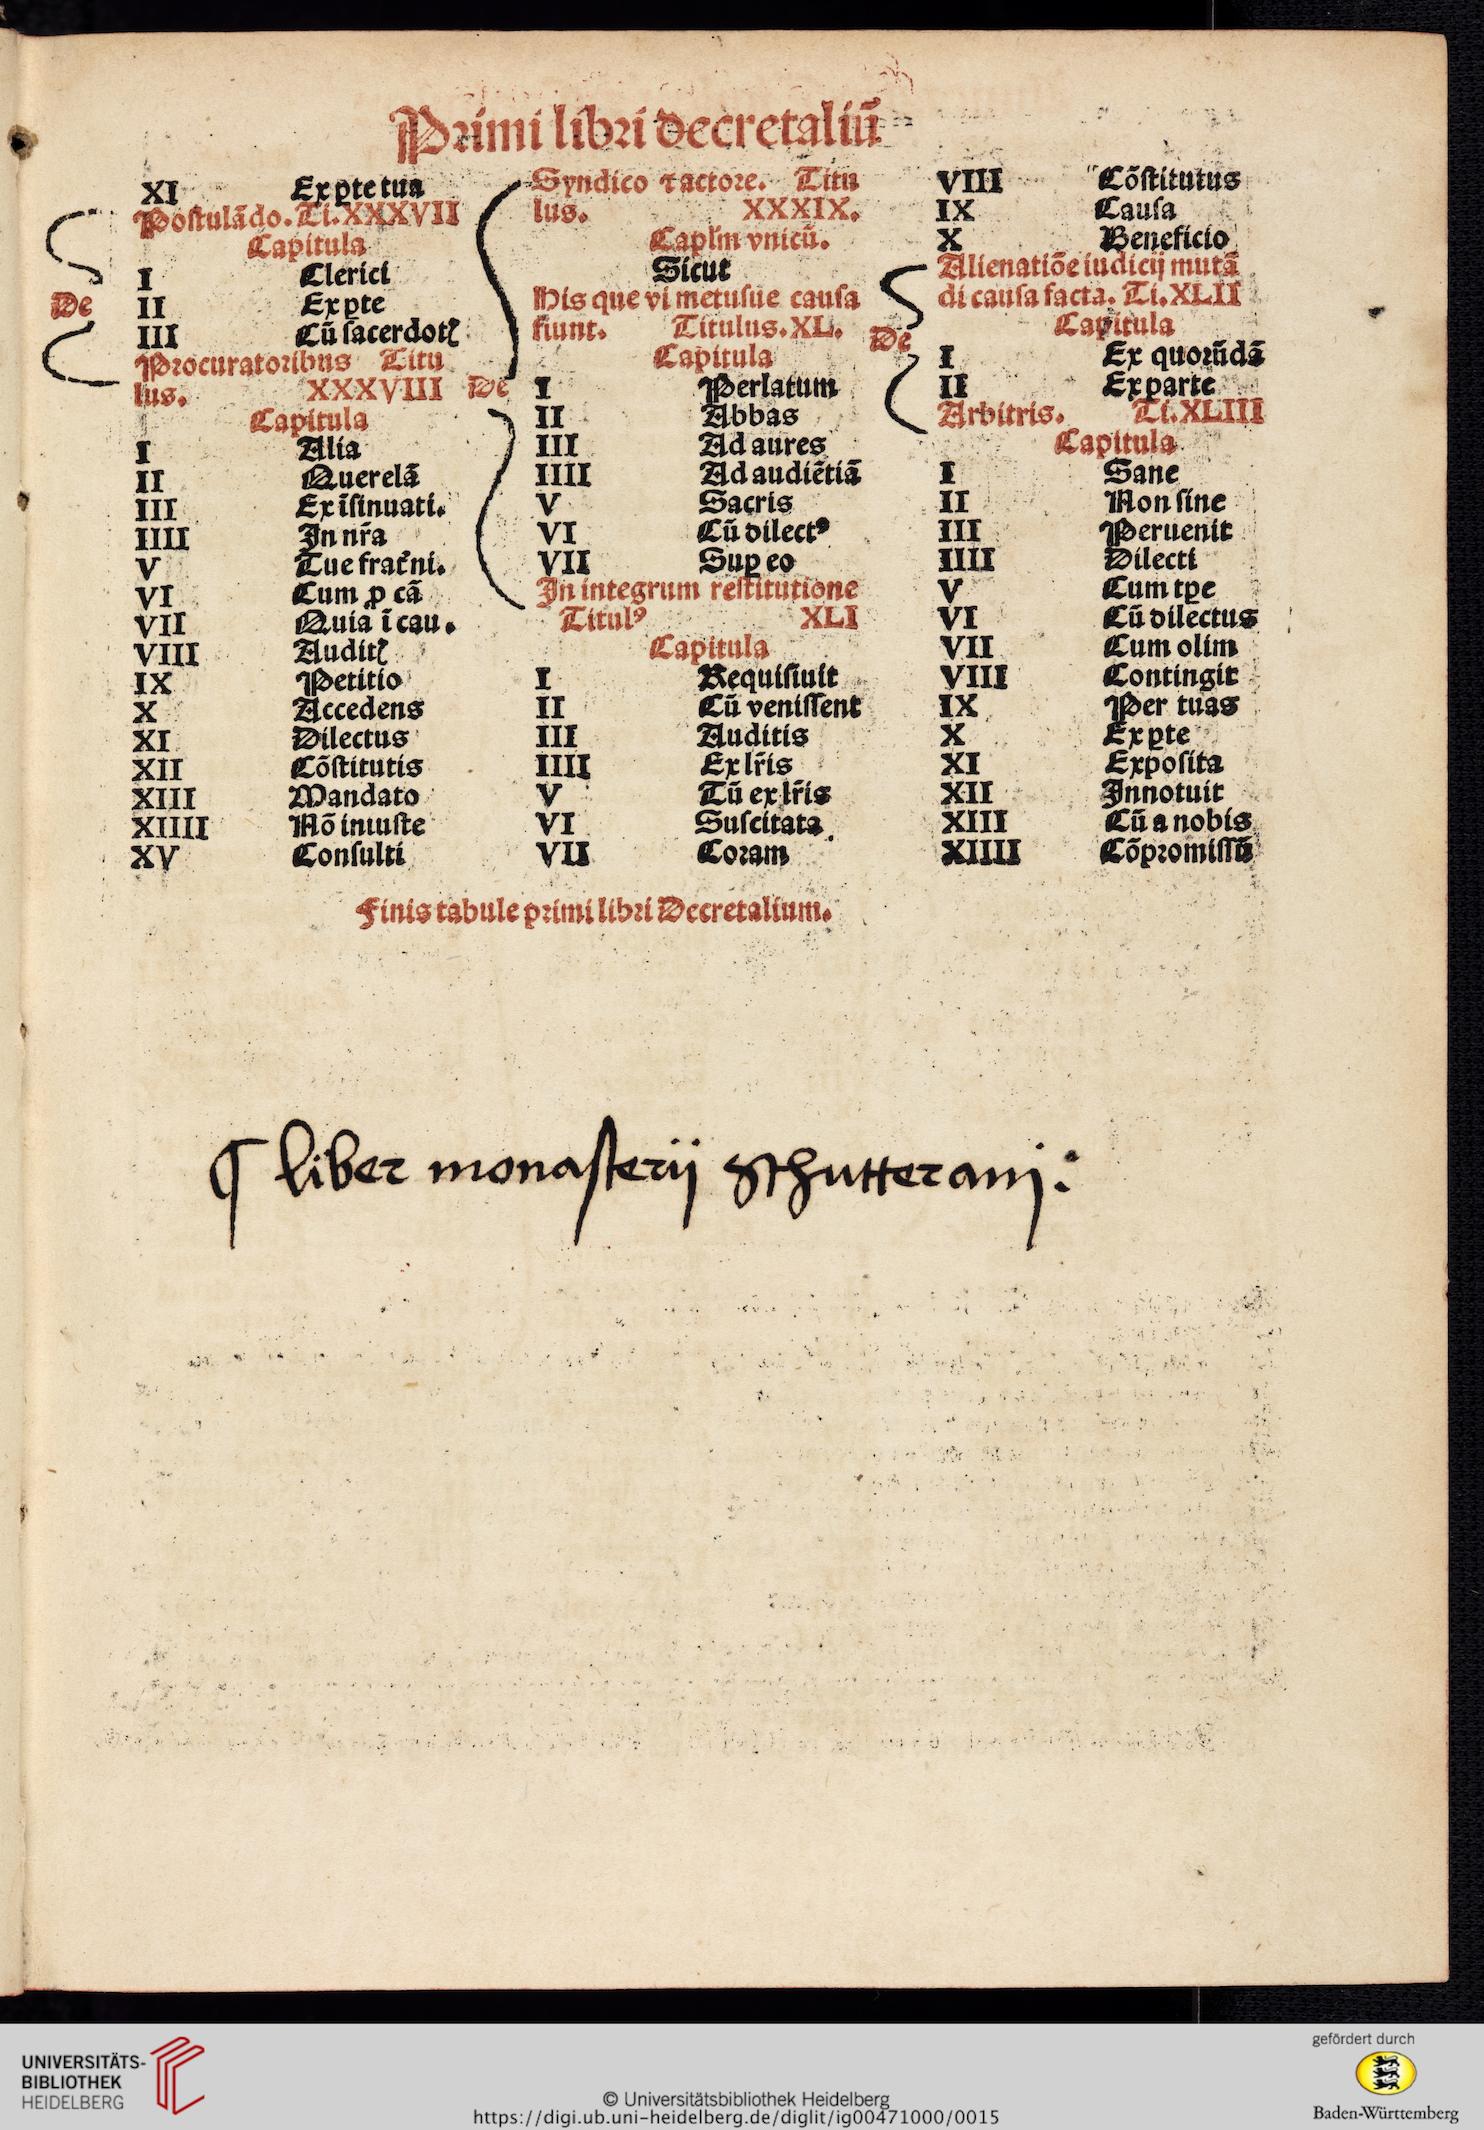 Primi libri decretaliũ
XI Ex ꝑte tua
Postulãdo. Ti. XXXVII
Capitula
I Clerici
De
II Ex ꝑte
III Cũ sacerdotꝭ
Procuratoribus Titu
lus. XXXVIII
Capitula
I Alia
II Querelã
III Ex ĩsinuati.
IIII In nr̃a
V Tue frat̃ni.
VI Cum ꝓ cã
VII Quia ĩ cau.
VIII Auditꝭ
IX Petitio
X Accedens
XI Dilectus
XII Cõstitutis
XIII Mandato
XIIII Nõ iniuste
XV Consulti
Syndico ⁊ actore. Titu
lus. XXXIX.
Capl'm vnicũ.
Sicut
His que vi metusue causa
fiunt. Titulus. XL.
Capitula
De
I Perlatum
II Abbas
III Ad aures
IIII Ad audiẽtiã
V Sacris
VI Cũ dilectꝰ
VII Suꝑ eo
In integrum restitutione
Titulꝰ XLI
Capitula
I Requisiuit
II Cũ venissent
III Auditis
IIII Ex lr̃is
V Tũ ex lr̃is
VI Suscitata
VII Coram
VIII Cõstitutus
IX Causa
X Beneficio
Alienatiõe iudicij mutã
di causa facta. Ti. XLII
Capitula
De
I Ex quorũdã
II Ex parte
Arbitris. Ti. XLIII
Capitula
I Sane
II Non sine
III Peruenit
IIII Dilecti
V Cum tꝑe
VI Cũ dilectus
VII Cum olim
VIII Contingit
IX Per tuas
X Ex ꝑte
XI Exposita
XII Innotuit
XIII Cũ a nobis
XIIII Cõpromissũ
Finis tabule primi libri Decretalium.
¶ liber monasterij Schutterani :
UNIVERSITÄTS-
BIBLIOTHEK
HEIDELBERG
© Universitätsbibliothek Heidelberg
https://digi.ub.uni-heidelberg.de/diglit/ig00471000/0015
gefördert durch
Baden-Württemberg